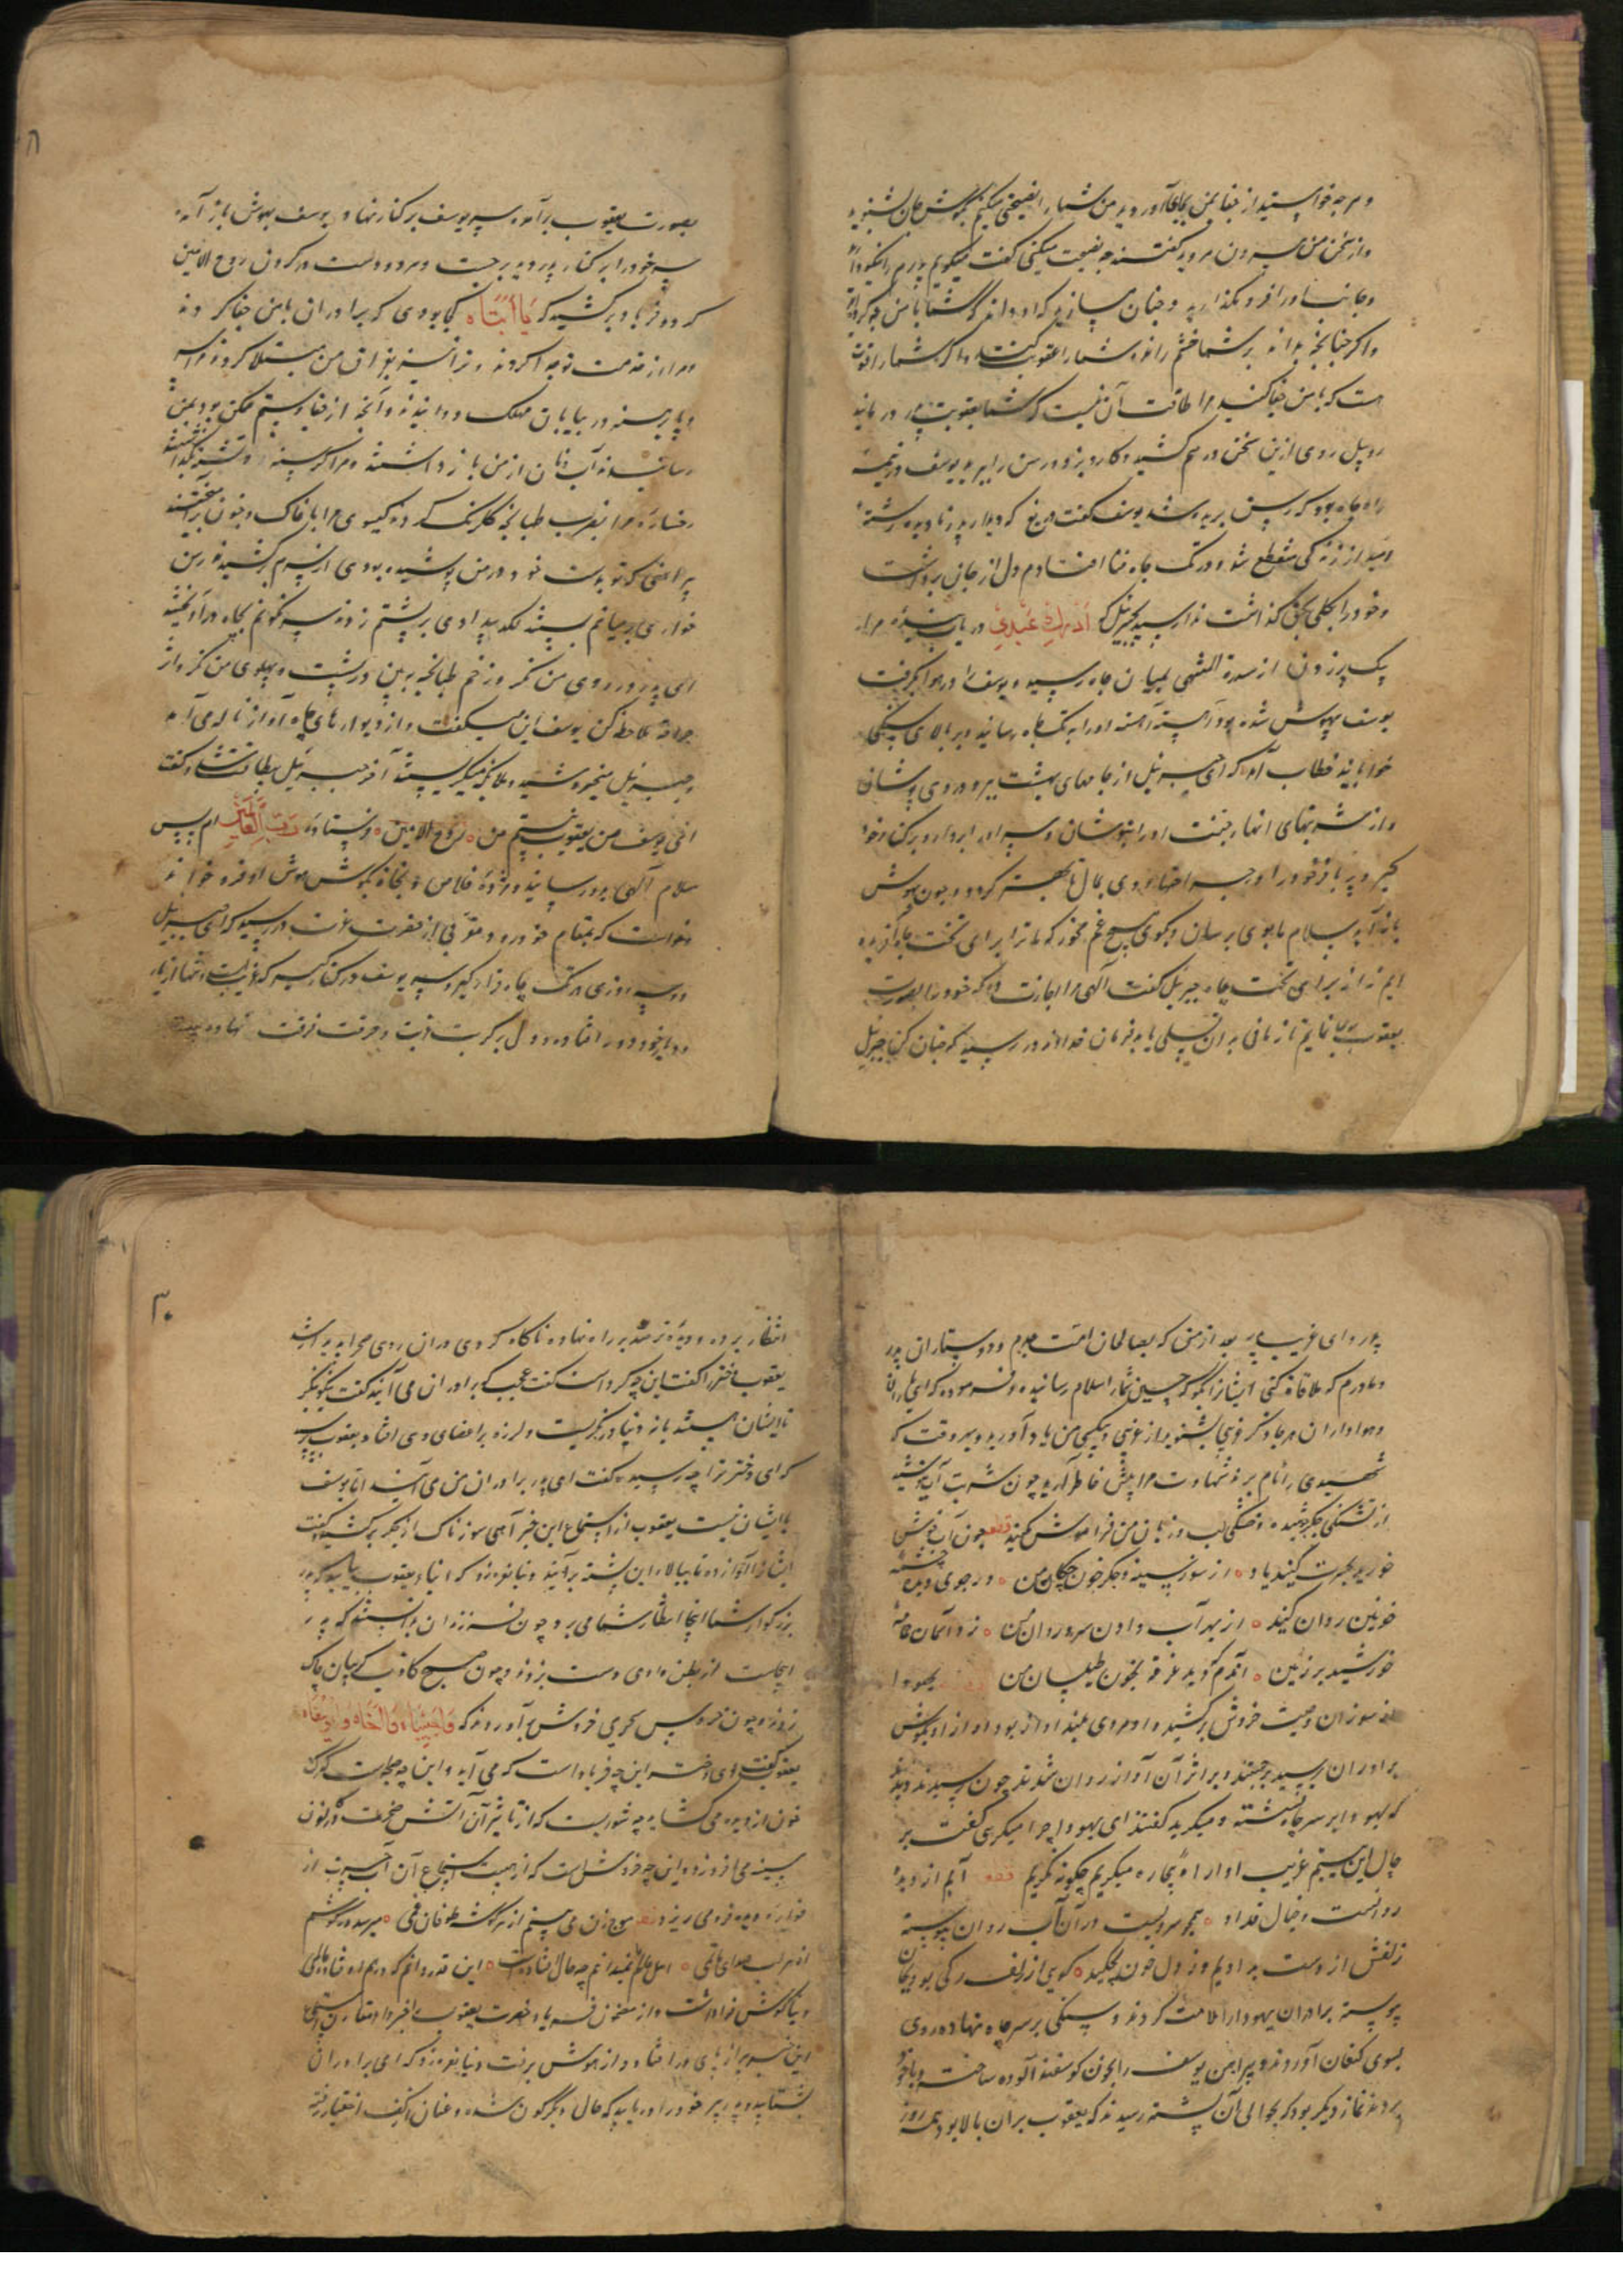 و هرچه خواستید از جفا بمن بجای آوردید من شما را نصیحتی میکنم بگوش جان بشنوید
و از سخن من بیرون مروید گفتند چه نصیحت میکنی گفت میگویم پدرم را نیکو دارید
و جانب او را فرو مگذارید و چنان سازید که او نداند که شما با من چه کرده‌اید
و اگر چنانچه بداند بر شما خشم راند و شما را عقوبت کنند و اگر شما را قوت
هست که با من جفا کنید مرا طاقت آن نیست که شما بعقوبت پدر در مانید
روبیل روی ازین سخن در هم کشید و کارد بزد و رسن را ببرید یوسف در نیمه
راه چاه بود که رسن بریده شد یوسف گفت دریغ که دیدار پدر نادیده رشته
امید از زندگی منقطع شد و در تک چاه فنا افتادم دل از جان برداشت
و خود را بکلی بحق گذاشت ندا رسید بجبرئیل که أدرك عبدي دریاب بنده مرا
یک پر زدن از سدرة المنتهی بمیان چاه رسید و یوسف را در هوا بگرفت
یوسف بیهوش شده بود آهسته آهسته او را به تک چاه رسانید و بر بالای سنگی
خوابانید خطاب آمد که ای جبرئیل از جامهای بهشت ببر و در وی پوشان
و از شربتهای انهار جنت او را بنوشان و سر او را بردار و بر کنار خود
گیر و پر بافر خود را در جراحتهای وی بمال تا بهتر گردد و چون بهوش
باز آید سلام ما بوی برسان و بگوی هیچ غم مخور که ما ترا برای تخت جاه آفریده
ایم نه از برای تخت چاه جبرئیل گفت الهی مرا اجازت ده که خود را بصورت
یعقوب بوی نمایم تا زمانی بدان تسلی یابد فرمان خداوند در رسید که چنان کن جبرئیل
بصورت یعقوب برآمد و سر یوسف بر کنار نهاد و یوسف بهوش باز آمد
سر خود را بر کنار پدر دید برجست و هر دو دست در گردن روح الامین
کرد و فریاد برکشید که یا أبتاه کجا بودی که برادران با من جفا کردند
و مرا از خدمت تو جدا کردند و ترا نیز بفراق من مبتلا کردند مرا سر
و پا برهنه در بیابان مهلک دوانیدند و آنچه از جفا و ستم ممکن بود بمن
رسانیدند آب و نان از من باز داشتند و مرا گرسنه و تشنه بگذاشتند
رخساره مرا بضرب طبانچه گلرنگ کردند گیسوی مرا با خاک و خون برآمیختند
پیراهنی که تو بدست خود در من پوشیده بودی از سرم برکشیدند رسن
خواری بر میانم بستند لگد بیدادی بر پشتم زدند سرنگونم بچاه درآویختند
ای پدر در روی من نگر و زخم طبانچه ببین و در پشت و پهلوی من نگر و اثر
جراحت ملاحظه کن یوسف این میگفت و از دیوارهای چاه آواز ناله می‌آمد
و جبرئیل میخروشید و ملائکه میگریستند آخر جبرئیل بیطاقت شد و گفت
اخی یوسف من یعقوب نیستم من روح الامین و فرستاده رب العالمین ام پس
سلام الهی بدو رسانید و مژده خلاص و نجات بگوش هوش او فرو خواند
و خواست که بمقام خود رود و موتی از حضرت عزت در رسید که ای جبرئیل
دو سه روزی در تک چاه قرار گیر و سر یوسف در کنار گیر که غریبست و تنها از یار
و دیار خود دور افتاده و دل بر کربت و حرقت فرقت نهاده
پدر و ای غریب پدر بعد از من که بصالحان امت جدم و دوستاران پدر
و مادرم که ملاقات کنی ایشانرا بگو که حسین شما را سلام رسانیده و فرموده که ای یاران
و هواداران هر جا ذکر غریبی بشنوید از غریبی و بیکسی من یاد آورید و هر وقت که
شهیدی را نام برند شهادت مرا پیش خاطر آرید و چون شربت آب بنوشید
از تشنگی جگر تفتیده و خشکی لب و زبان من فراموش مکنید قطعه چون آب خوش
خورید بحسرت کنید یاد از سوز سینه و جگر خون چکان من در جوی دیده چشمه
خونین روان کنید از بهر آب دادن سرو روان من زد آسمان عمامه
خورشید بر زمین آندم که دید غرقه بخون طیلسان من یهودا
از سوز آن وصیت خروش برکشید و او مردی بلند آواز بود آواز او بگوش
برادران رسید برجستند و بر اثر آن آواز روان شدند چون رسیدند دیدند
که یهودا بر سر چاه نشسته و میگرید گفتند ای یهودا چرا میگریی گفت بر
حال این یتیم غریب آواره بیچاره میگریم چگونه نگریم قطعه آبم از دیده
روانست و خیال قد او همچو سرویست در آن آب روان پیوسته
زلفش از دست بدادیم و ز دل خون بچکید گویی از زلف رگی بود بجان
پیوسته برادران یهودا را ملامت کردند و سنگی بر سر چاه نهاده روی
بسوی کنعان آوردند و پیراهن یوسف را بخون گوسفند آلوده ساختند و با خود
بردند نماز دیگر بود که بحوالی آن پشته رسیدند که یعقوب بران بالا بود همه روز
۳۰
انتظار برده و دیده ترصد بر راه نهاده ناگاه گردی دران روی صحرا پدید شد
یعقوب دختر را گفت این چه گرد است گفت عجب که برادران می‌آیند گفت نیکو بنگر
تا ایشان هستند یا نه دنیا در نگریست و لرزه بر اعضای وی افتاد یعقوب پرسید
که ای دختر ترا چه رسید گفت ای پدر برادران من می‌آیند اما یوسف
با ایشان نیست یعقوب از استماع این خبر آهی سوزناک از جگر برکشید و گفت
ایشانرا آواز ده تا ببالاء این پشته برآیند دنیا نعره زد که ابناء یعقوب بیایید که پدر
بزرگوار شما اینجا انتظار شما می‌برد چون فرزندان دانستند که پدر
اینجاست از بطن وادی دست بزدند و چون صبح کاذب گریبان چاک
زدند و چون خروس سحری خروش برآوردند که واحبیباه واأخاه وایوسفاه
یعقوب گفت ای دختر این چه فریاد است که می‌آید و این چه صیحه است که رگ
خون از دیده می‌گشاید چه شوریست که از تاثیر آن آتش حیرت در کانون
سینه می‌افروزد و این چه خروش است که از هیبت استماع آن آب حسرت از
فواره دیده فرو می‌ریزد قطعه موج زن می‌بینم از هر گوشه طوفان غمی میرسد در گوشم
از هر لب صدای ماتمی اهل عالم نمیدانم چه حال افتادست این قدر دانم که در هم افتاده عالمی
دنیا گوش فرا داشت و از مضمون فریاد حضرت یعقوب را خبر داد مقارن استماع
این خبر پیر از پای در افتاد و از هوش برفت دنیا نعره زد که ای برادران
بشتابید و پدر پیر خود را دریابید که حال او دگرگون شده و عنان از کف اختیار رفته